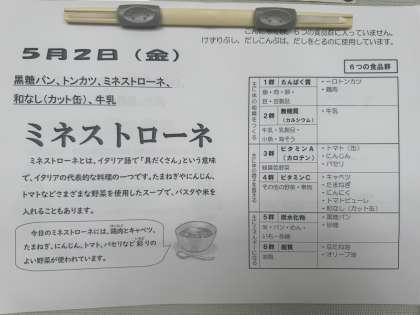 は、6つの食品群に入っていません。
けずりぶし、だしこんぶは、だしをとるのに使用しています。
5月2日（金）
黒糖パン、トンカツ、ミネストローネ、
和なし（カット缶）、牛乳
ミネストローネ
ミネストローネとは、イタリア語で「具だくさん」という意味
で、イタリアの代表的な料理の一つです。たまねぎやにんじん、
トマトなどさまざまな野菜を使用したスープで、パスタや米を
入れることもあります。
今日のミネストローネには、鶏肉とキャベツ、
たまねぎ、にんじん、トマト、パセリなど彩りの
よい野菜が使われています。
6つの食品群
1群 たんぱく質
魚・肉・卵・
豆・豆製品
・一口トンカツ
・鶏肉
2群 無機質
（カルシウム）
牛乳・乳製品・
小魚・海そう
・牛乳
3群 ビタミンA
（カロテン）
緑黄色野菜
・トマト（缶）
・にんじん
・パセリ
4群 ビタミンC
その他の野菜・果物
・キャベツ
・たまねぎ
・にんにく
・トマトピューレ
・和なし（カット缶）
5群 炭水化物
米・パン・めん・
いも・砂糖
・黒糖パン
・砂糖
6群 脂質
油脂
・オリーブ油